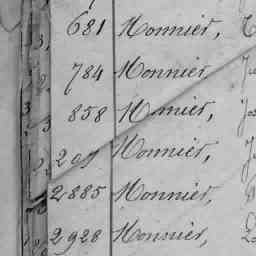 681 Monnier,
784 Monnier,
858 Monnier,
Monnier,
2885 Monnier,
2928 Monnier,